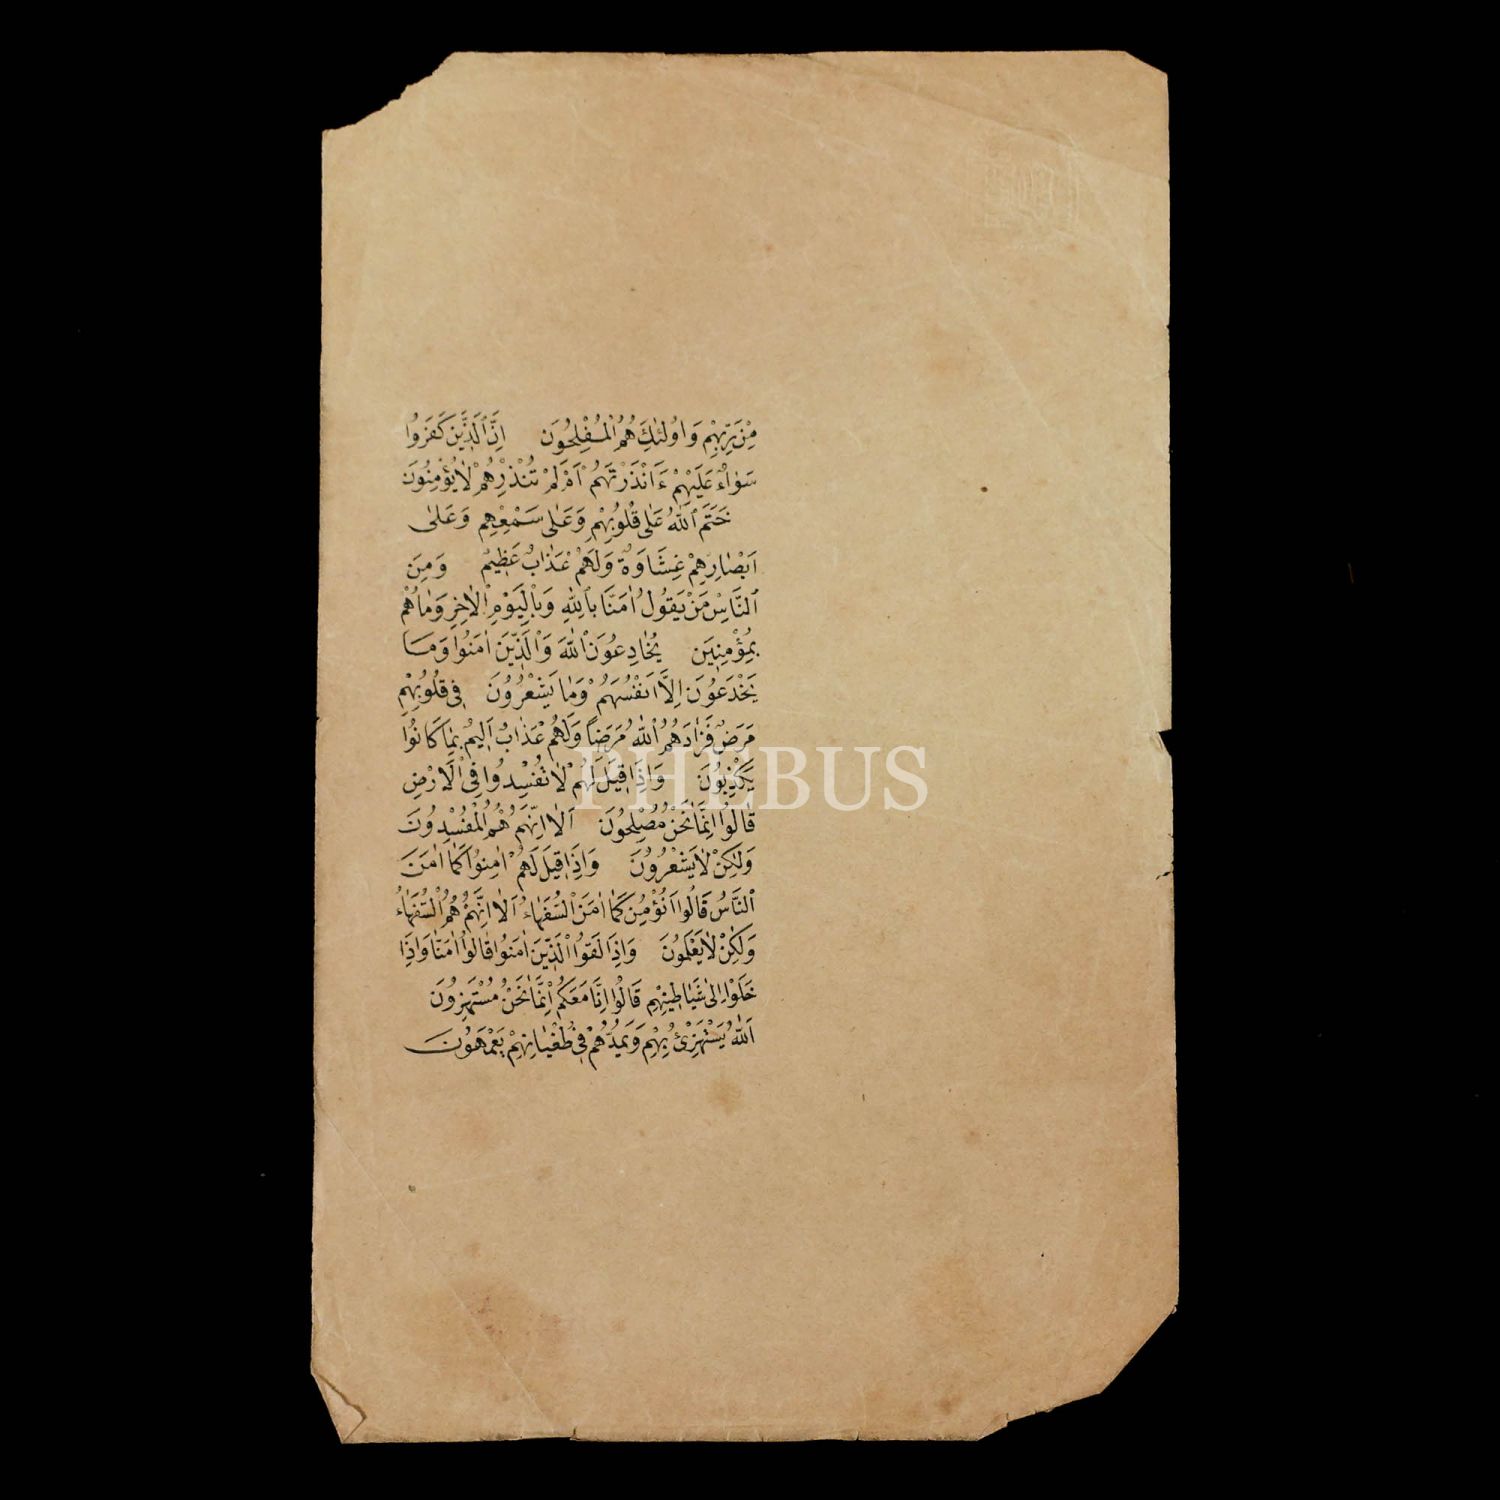 مِنْ رَبِّهِمْ وَاُولٰئِكَ هُمُ الْمُفْلِحُونَ اِنَّ الَّذِينَ كَفَرُوا
سَوَاءٌ عَلَيْهِمْ ءَاَنْذَرْتَهُمْ اَمْ لَمْ تُنْذِرْهُمْ لَا يُؤْمِنُونَ
خَتَمَ اللّٰهُ عَلٰى قُلُوبِهِمْ وَعَلٰى سَمْعِهِمْ وَعَلٰى
اَبْصَارِهِمْ غِشَاوَةٌ وَلَهُمْ عَذَابٌ عَظِيمٌ وَمِنَ
النَّاسِ مَنْ يَقُولُ اٰمَنَّا بِاللّٰهِ وَبِالْيَوْمِ الْاٰخِرِ وَمَا هُمْ
بِمُؤْمِنِينَ يُخَادِعُونَ اللّٰهَ وَالَّذِينَ اٰمَنُوا وَمَا
يَخْدَعُونَ اِلَّا اَنْفُسَهُمْ وَمَا يَشْعُرُونَ فِى قُلُوبِهِمْ
مَرَضٌ فَزَادَهُمُ اللّٰهُ مَرَضًا وَلَهُمْ عَذَابٌ اَلِيمٌ بِمَا كَانُوا
يَكْذِبُونَ وَاِذَا قِيلَ لَهُمْ لَا تُفْسِدُوا فِى الْاَرْضِ
قَالُوا اِنَّمَا نَحْنُ مُصْلِحُونَ اَلَا اِنَّهُمْ هُمُ الْمُفْسِدُونَ
وَلٰكِنْ لَا يَشْعُرُونَ وَاِذَا قِيلَ لَهُمْ اٰمِنُوا كَمَا اٰمَنَ
النَّاسُ قَالُوا اَنُؤْمِنُ كَمَا اٰمَنَ السُّفَهَاءُ اَلَا اِنَّهُمْ هُمُ السُّفَهَاءُ
وَلٰكِنْ لَا يَعْلَمُونَ وَاِذَا لَقُوا الَّذِينَ اٰمَنُوا قَالُوا اٰمَنَّا وَاِذَا
خَلَوْا اِلٰى شَيَاطِينِهِمْ قَالُوا اِنَّا مَعَكُمْ اِنَّمَا نَحْنُ مُسْتَهْزِؤُنَ
اَللّٰهُ يَسْتَهْزِئُ بِهِمْ وَيَمُدُّهُمْ فِى طُغْيَانِهِمْ يَعْمَهُونَ
PHEBUS